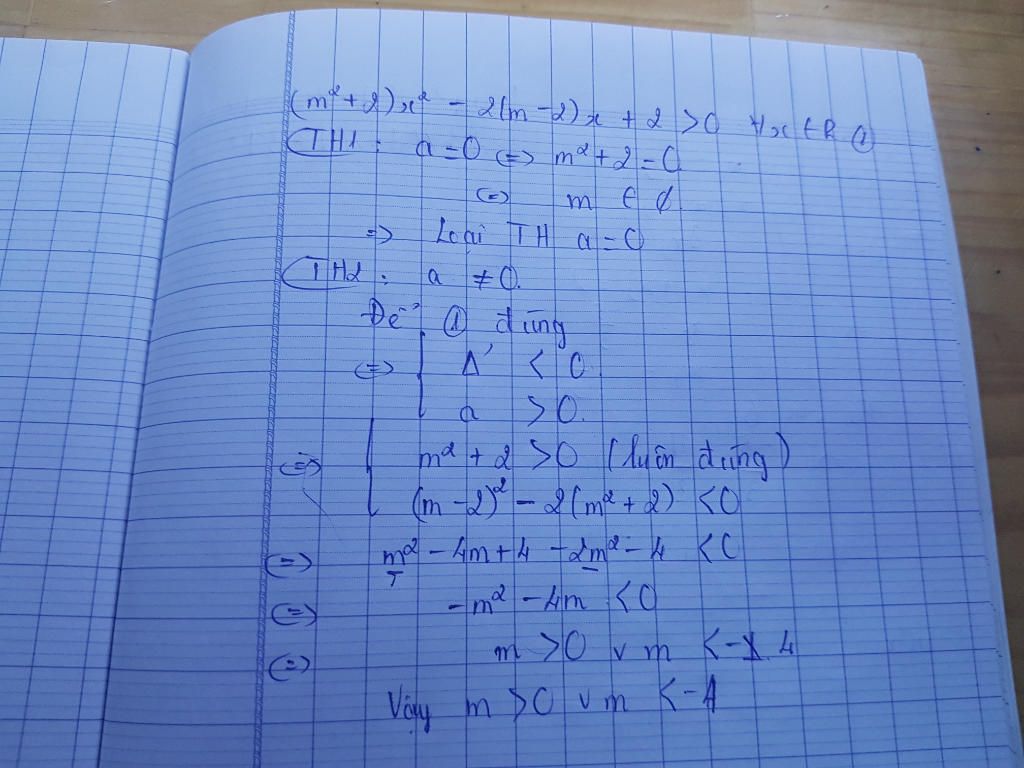 (m² + 2)x² - 2(m - 2)x + 2 > 0 ∀x ∈ R ①
TH1 : a = 0 <=> m² + 2 = 0
<=> m ∈ ∅
=> Loại TH a = 0
TH2 : a ≠ 0.
Để ① đúng
<=> { Δ' < 0
a > 0.
<=> { m² + 2 > 0 (luôn đúng)
(m - 2)² - 2(m² + 2) < 0
<=> m² - 4m + 4 - 2m² - 4 < 0
<=> -m² - 4m < 0
<=> m > 0 v m < - 4
Vậy m > 0 v m < -4